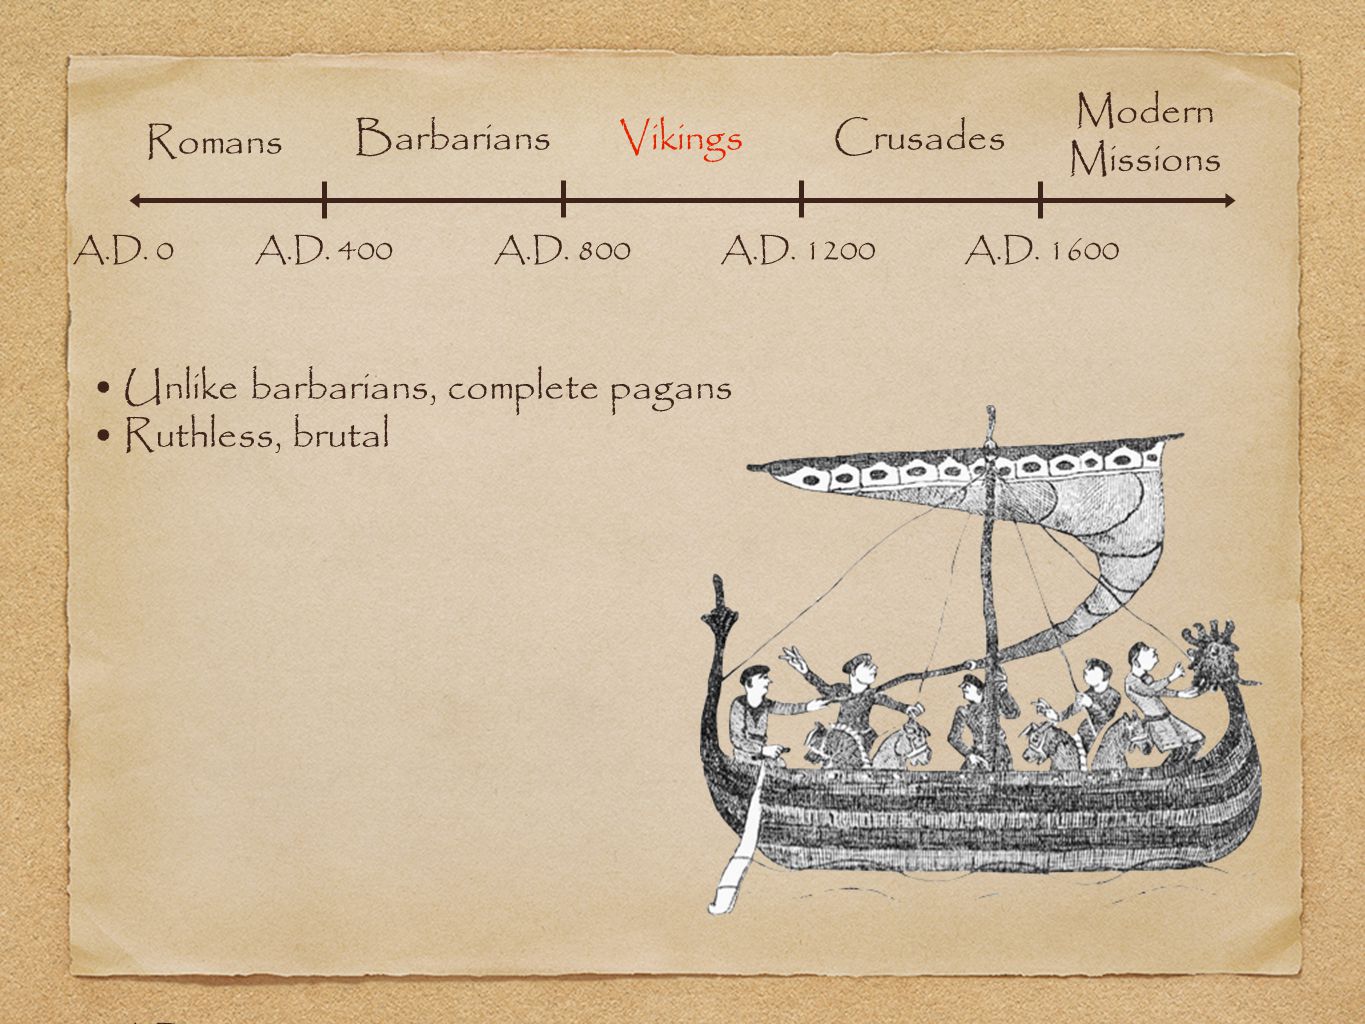 Romans
Barbarians
Vikings
Crusades
Modern
Missions
A.D. 0
A.D. 400
A.D. 800
A.D. 1200
A.D. 1600
• Unlike barbarians, complete pagans
• Ruthless, brutal